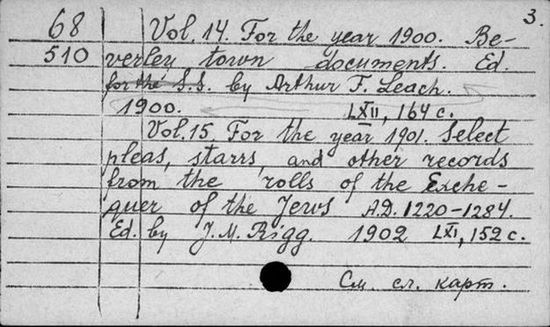 3.
68 Vol. 14. For the year 1900. Be-
510 verley town documents. Ed.
for the S.S. by Arthur F. Leach.
1900. LXII, 164 c.
Vol. 15. For the year 1901. Select
pleas, starrs, and other records
from the rolls of the Exche-
quer of the Jews A.D. 1220-1284.
Ed. by J. M. Rigg. 1902 LXI, 152 c.
См. сл. карт.